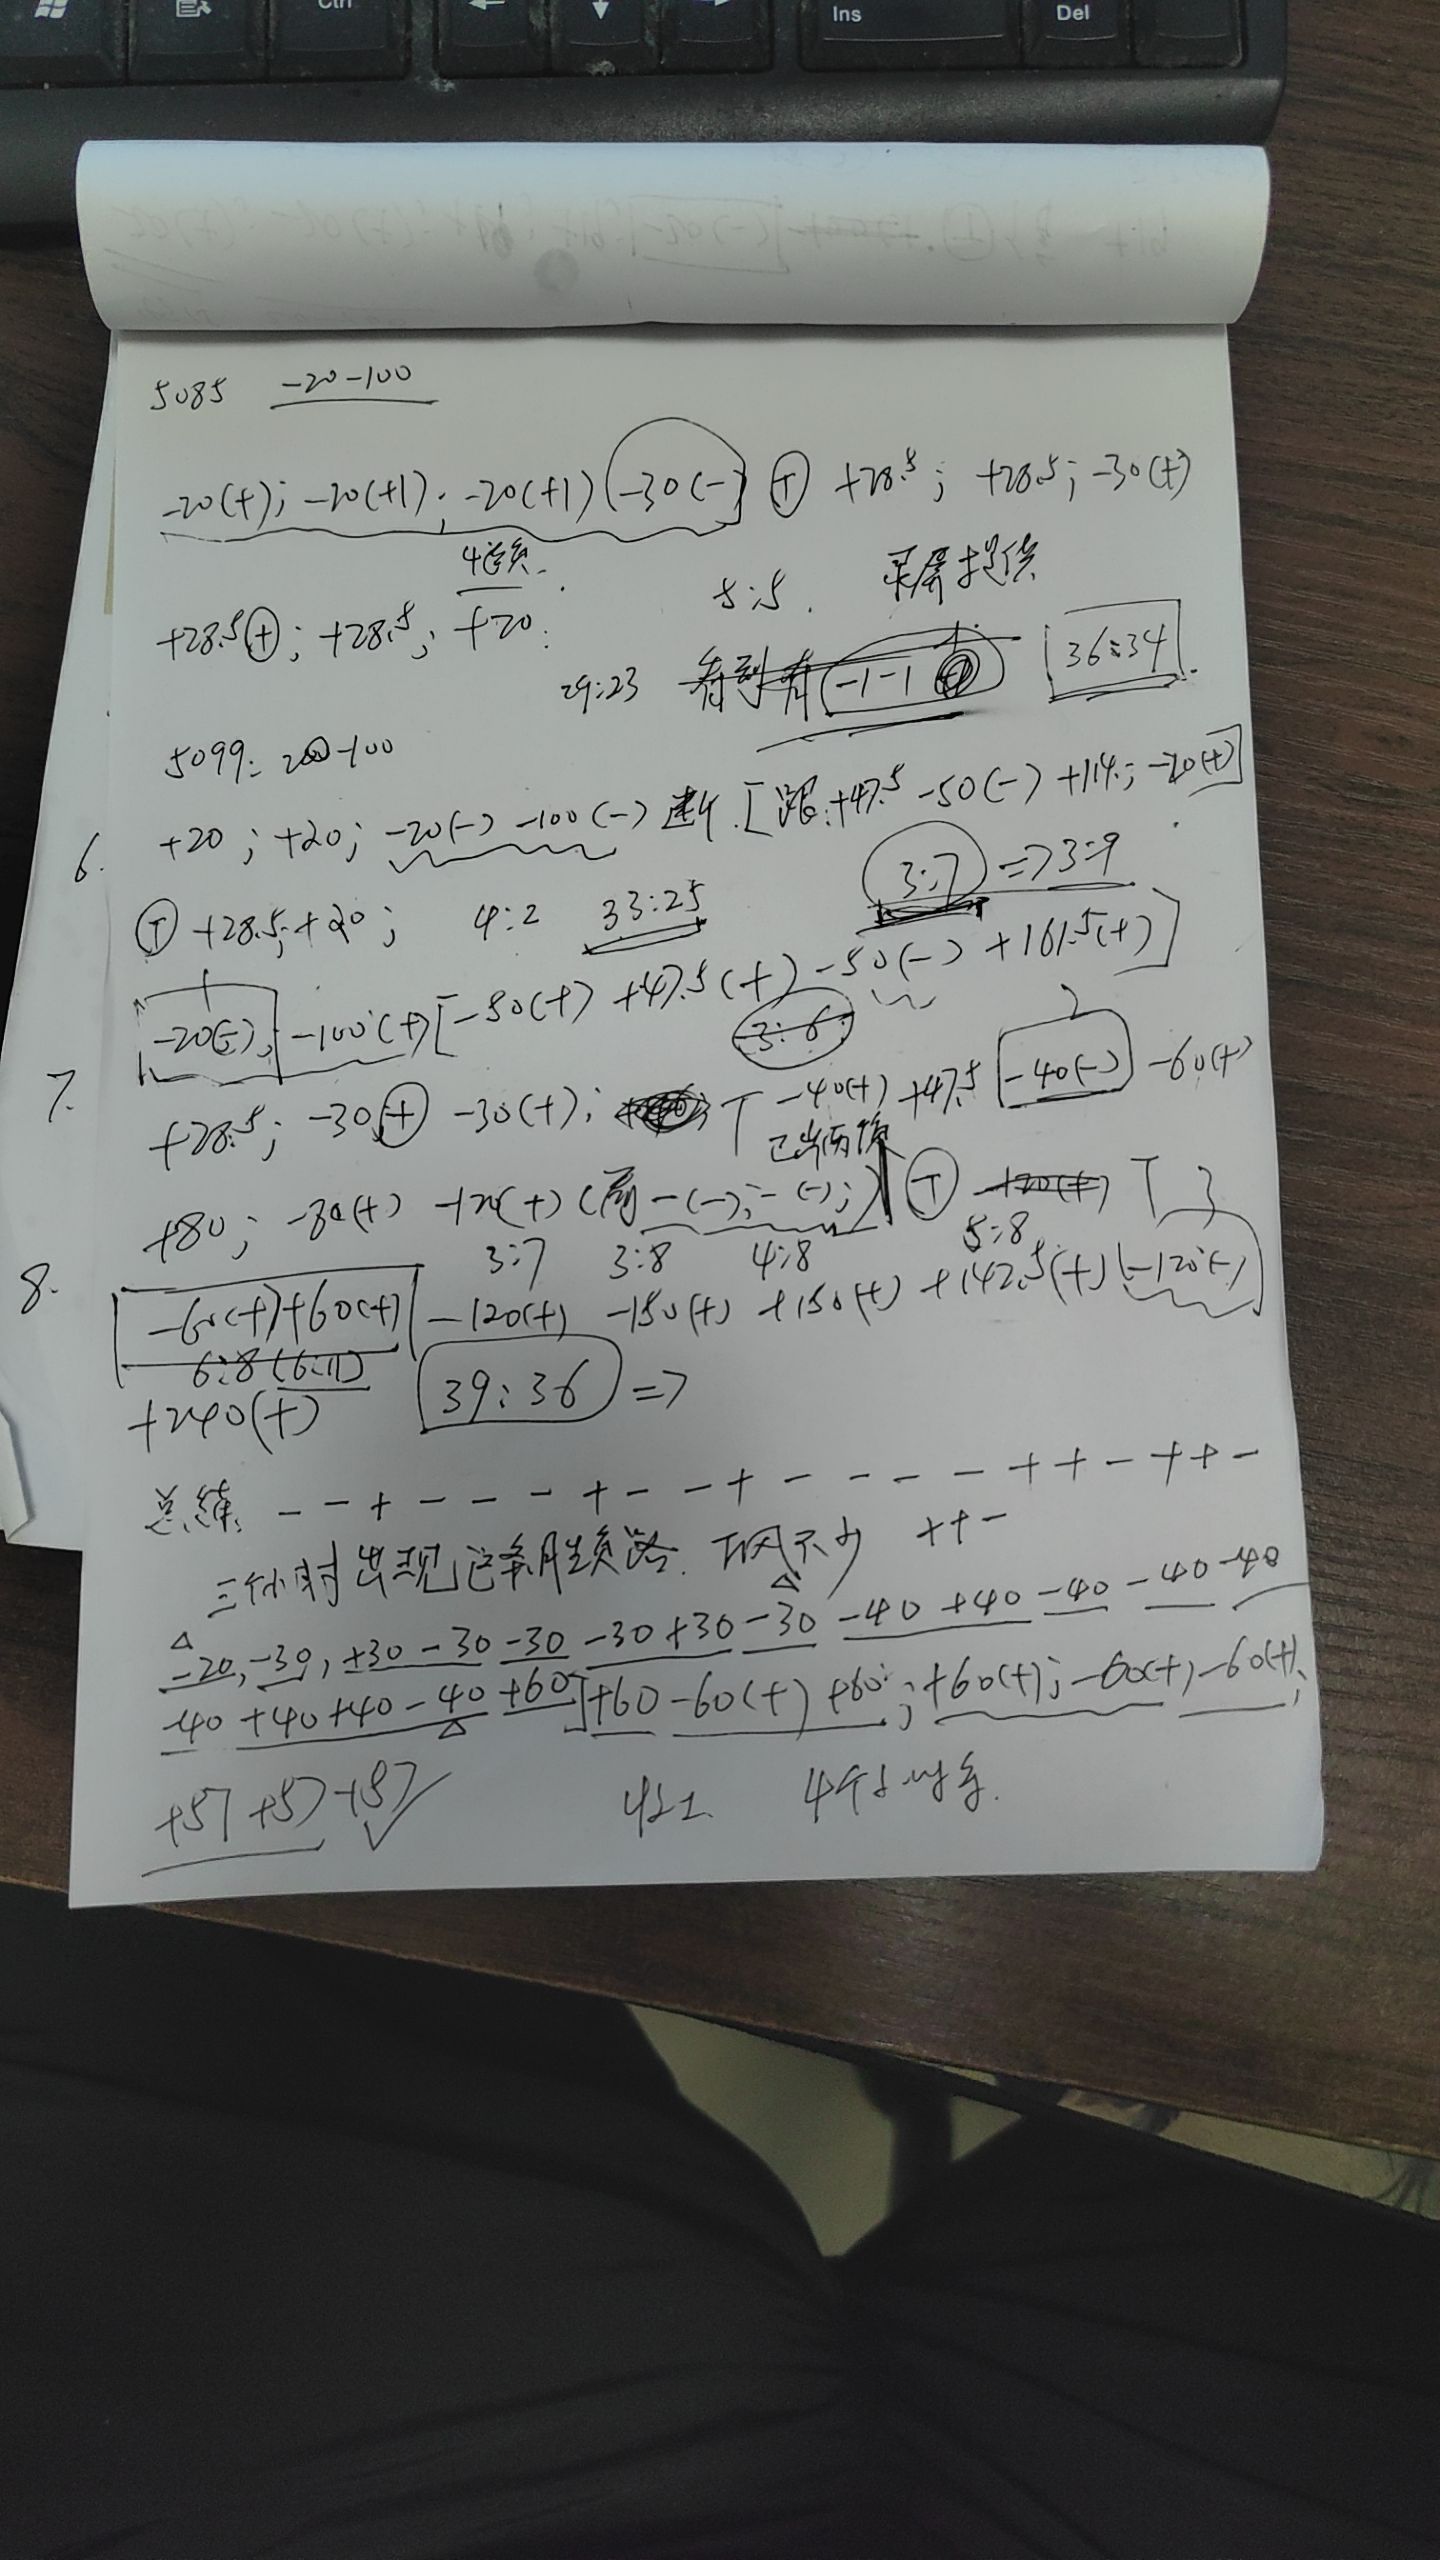 Ctrl
Ins
Del
5085 -20-100
-20(+); -20(+1); -20(+1) (-30(-) T +28.5; +28.5; -30(+)
4连负
+28.5(+); +28.5; +20; 5:5. 录屏提供
29:23 看到有 -1-1 36:34
5099: 200-100
6. +20; +20; -20(-) -100(-) [跟:+47.5 -50(-) +114; -20(+)]
T +28.5; +20; 4:2 33:25 3:7 => 3:9
-20(-); -100(+) [-50(+) +47.5(+) -50(-) +161.5(+)]
3:6
7. +28.5; -30(+) -30(+); T -40(+) +47.5 -40(-) -60(+)
+80; -30(+) -120(+) (前-(-); -(-);) T -120(+) T 3
3:7 3:8 4:8 5:8
8. -60(+) +60(+) -120(+) -150(+) +150(+) +142.5(+) -120(-)
6:8 (6:11)
+240(+) 39:36 =>
总续: - - + - - - + - - + - - - - + + - + + -
三个小时出现这条胜负路. 下风不少 + + -
-20, -30, +30 -30 -30 -30 +30 -30 -40 +40 -40 -40 -40
-40 +40 +40 -40 +60] +60 -60(+) +60; +60(+); -60(+) -60(+);
+57 +57 +57 ✓ 收工 4个小时多.